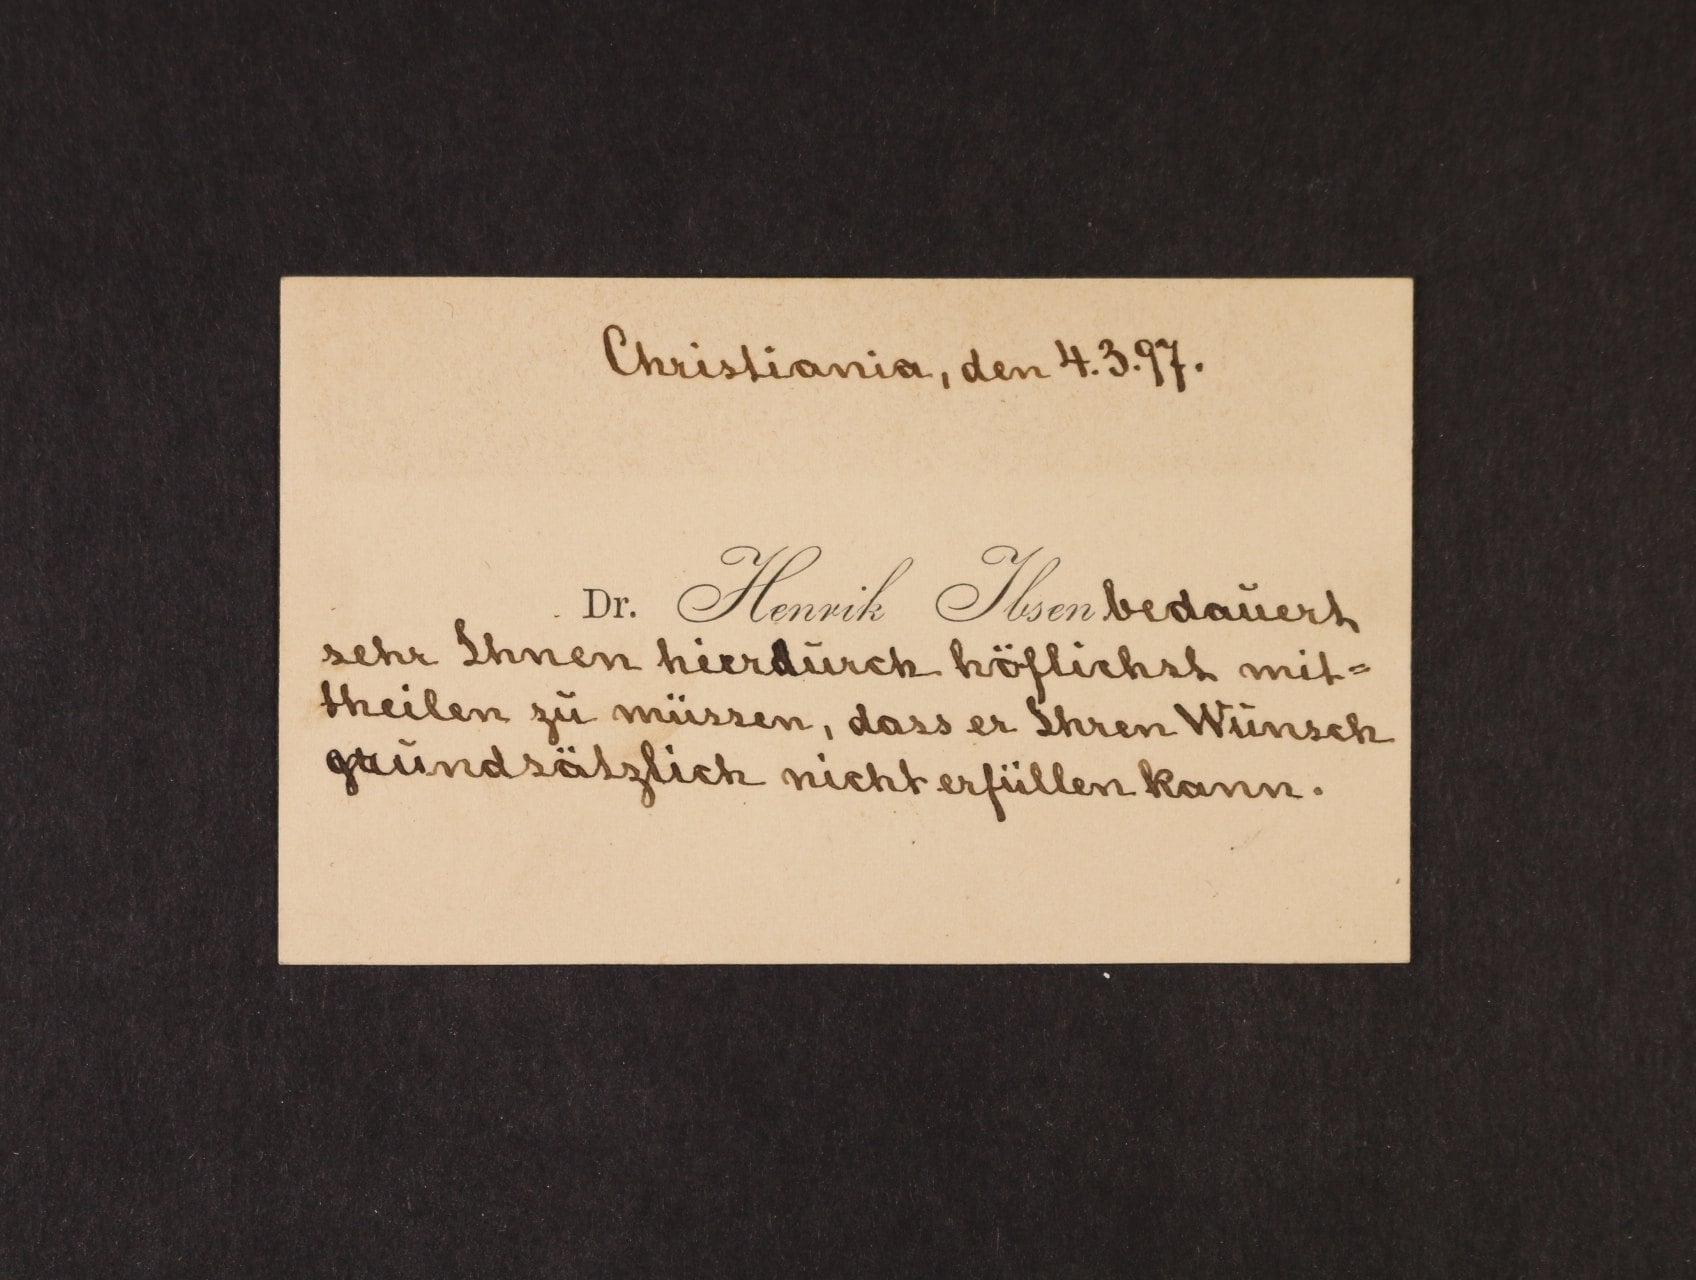 Christiania, den 4.3.97.
Dr. Henrik Ibsen bedauert
sehr Ihnen hierdurch höflichst mit=
theilen zu müssen, dass er Ihren Wunsch
grundsätzlich nicht erfüllen kann.